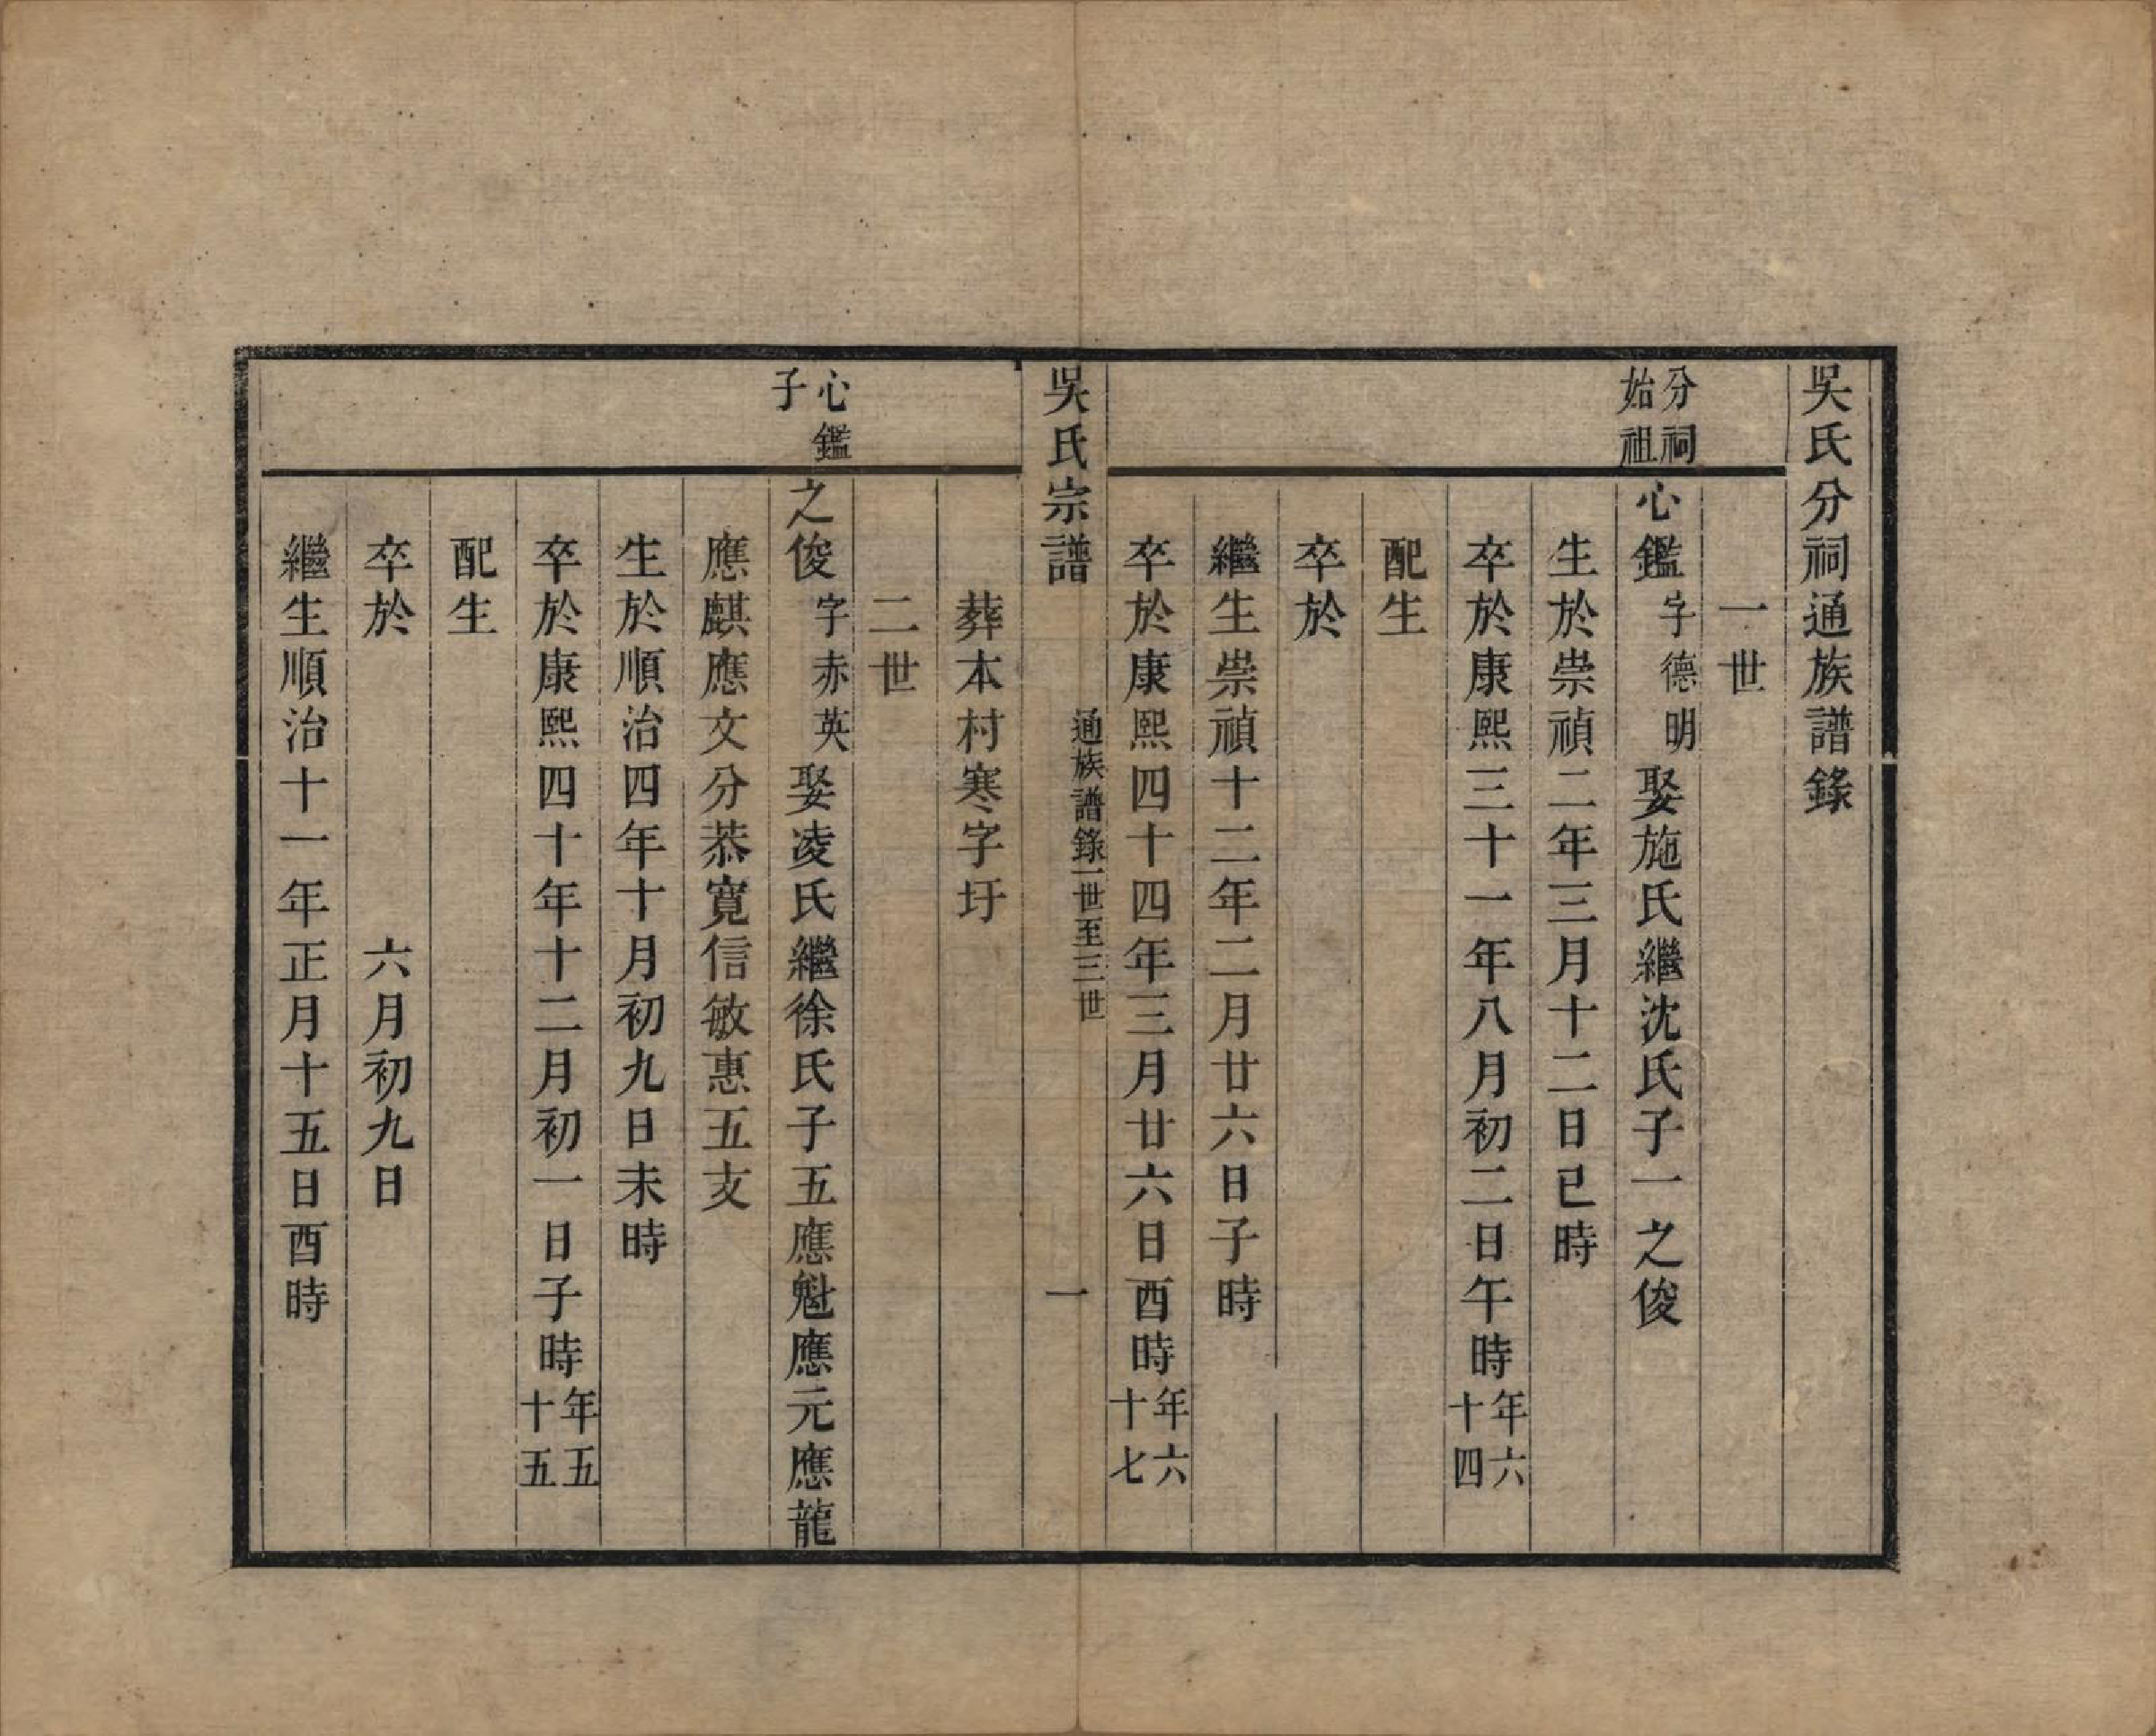 吳氏分祠通族譜錄
一世
分祠
始祖
心鑑字德明娶施氏繼沈氏子一之俊
生於崇禎二年三月十二日已時
卒於康熙三十一年八月初二日午時年六十四
配生
卒於
繼生崇禎十二年二月廿六日子時
卒於康熙四十四年三月廿六日酉時年六十七
吳氏宗譜
通族譜錄一世至三世
一
葬本村寒字圩
二世
心鑑
子
之俊字赤英娶凌氏繼徐氏子五應魁應元應龍
應麒應文分恭寬信敏惠五支
生於順治四年十月初九日未時
卒於康熙四十年十二月初一日子時年五十五
配生
卒於 六月初九日
繼生順治十一年正月十五日酉時